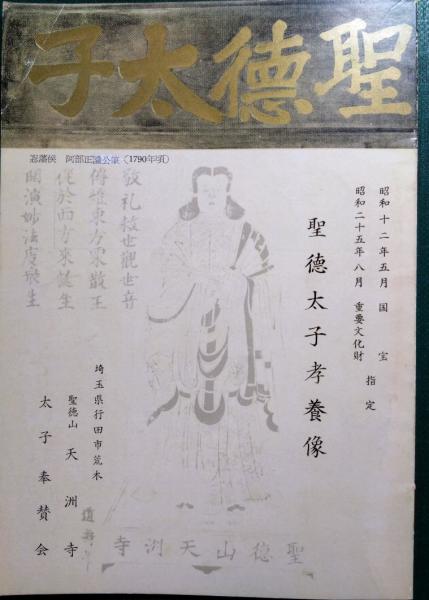 聖德太子
忍藩侯 阿部正識公筆(1790年頃)
昭和十二年五月 国宝 指定
昭和二十五年八月 重要文化財
聖德太子孝養像
敬礼救世觀世音
傳燈東方粟散王
従於西方來誕生
開演妙法度衆生
埼玉県行田市荒木
聖徳山 天洲寺
太子奉賛会
聖德山天洲寺